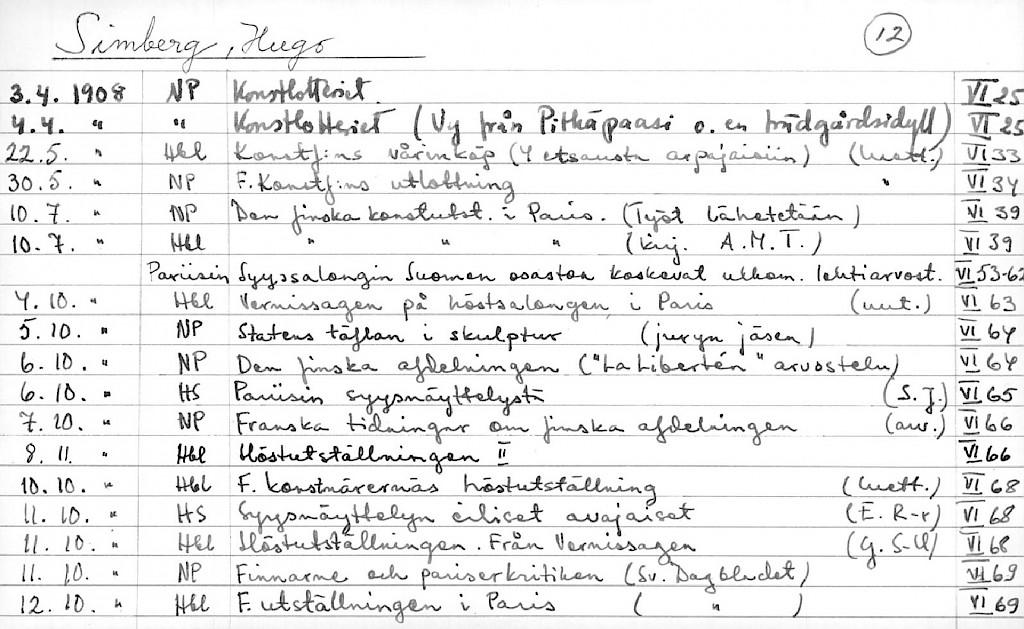 Simberg, Hugo 12
3.4. 1908 NP Konstlotteriet. VI 25
4.4. " " Konstlotteriet (Vy från Pitkäpaasi o. en trädgårdsidyll) VI 25
22.5. " Hbl Konstf:ns vårinköp (4 etsausta arpajaisiin) (luett.) VI 33
30.5. " NP F. Konstf:ns utlottning " VI 34
10.7. " NP Den finska konstutst. i Paris. (Työt lähetetään) VI 39
10.7. " Hbl " " " (kirj. A.M.T.) VI 39
Pariisin Syyssalongin Suomen osaston koskevat ulkom. lehtiarvost. VI 53-62
4.10. " Hbl Vernissagen på höstsalongen i Paris (uut.) VI 63
5.10. " NP Statens täflan i skulptur (juryn jäsen) VI 64
6.10. " NP Den finska afdelningen ("La Libertén" arvostelu) VI 64
6.10. " HS Pariisin syysnäyttelystä (S.J.) VI 65
7.10. " NP Franska tidningar om finska afdelningen (arv.) VI 66
8.11. " Hbl Höstutställningen II VI 66
10.10. " Hbl F. konstnärernäs höstutställning (luett.) VI 68
11.10. " HS Syysnäyttelyn eiliset avajaiset (E. R-r) VI 68
11.10. " Hbl Höstutställningen. Från Vernissagen (G. S-ll) VI 68
11.10. " NP Finnarne och pariserkritiken (Sv. Dagbladet) VI 69
12.10. " Hbl F. utställningen i Paris ( " ) VI 69